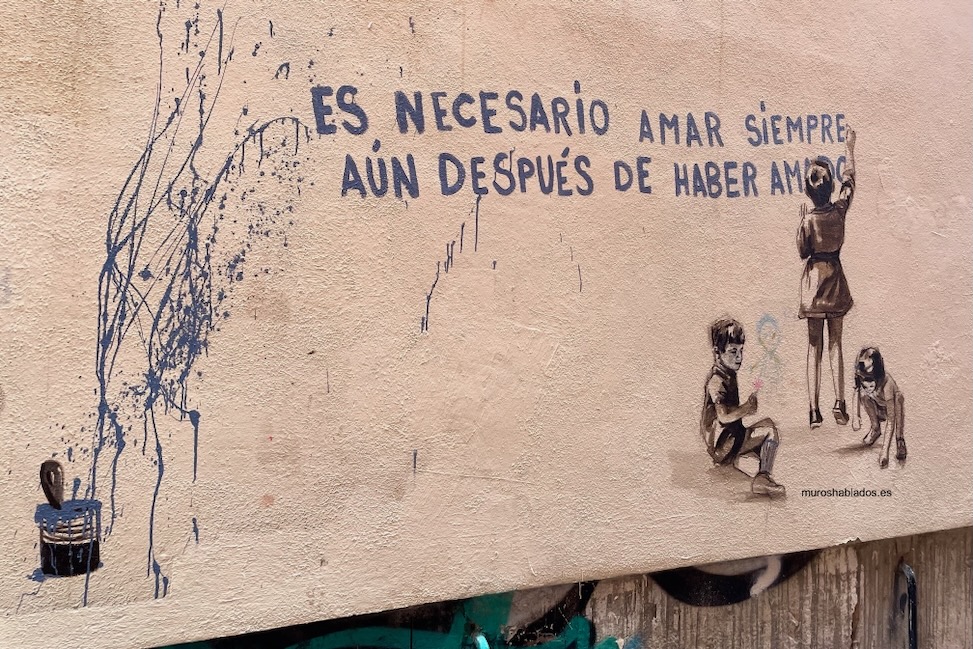 ES NECESARIO AMAR SIEMPRE
AÚN DESPUÉS DE HABER AMADO
muroshablados.es